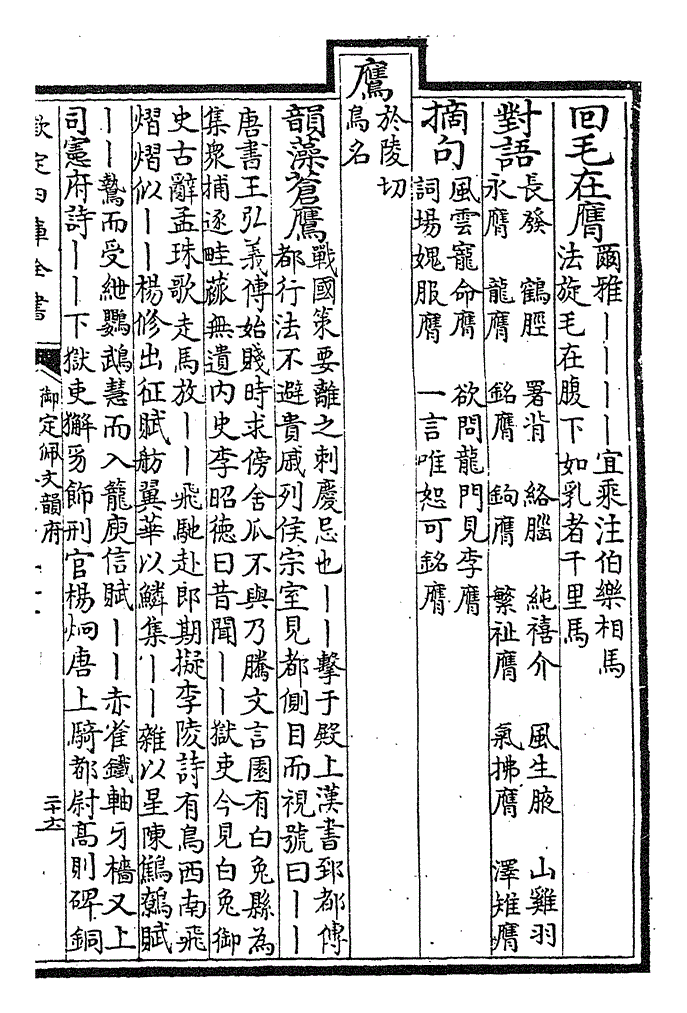 回毛在膺
爾雅丨丨丨丨宜乘注伯樂相馬
法旋毛在腹下如乳者千里馬
對語
長發 鶴脛 署背 絡腦 純禧介 風生腋 山雞羽
永膺 龍膺 銘膺 鉤膺 繁祉膺 氣拂膺 澤雉膺
摘句
風雲寵命膺 欲問龍門見李膺
詞場媿服膺 一言唯恕可銘膺
鷹
於陵切
鳥名
韻藻蒼鷹
戰國策要離之刺慶忌也丨丨擊于殿上漢書郅都傳
都行法不避貴戚列侯宗室見都側目而視號曰丨丨
唐書王弘義傳始賤時求傍舍瓜不與乃騰文言園有白兔縣為
集衆捕逐畦蓏無遺内史李昭德曰昔聞丨丨獄吏今見白兔御
史古辭孟珠歌走馬放丨丨飛馳赴郎期擬李陵詩有鳥西南飛
熠熠似丨丨楊修出征賦舫翼華以鱗集丨丨雜以星陳鷦鷯賦
丨丨鷙而受紲鸚鵡慧而入籠庾信賦丨丨赤雀鐵軸牙檣又上
司憲府詩丨丨下獄吏獬豸飾刑官楊炯唐上騎都尉高則碑銅
欽定四庫全書
御定佩文韻府
二十六